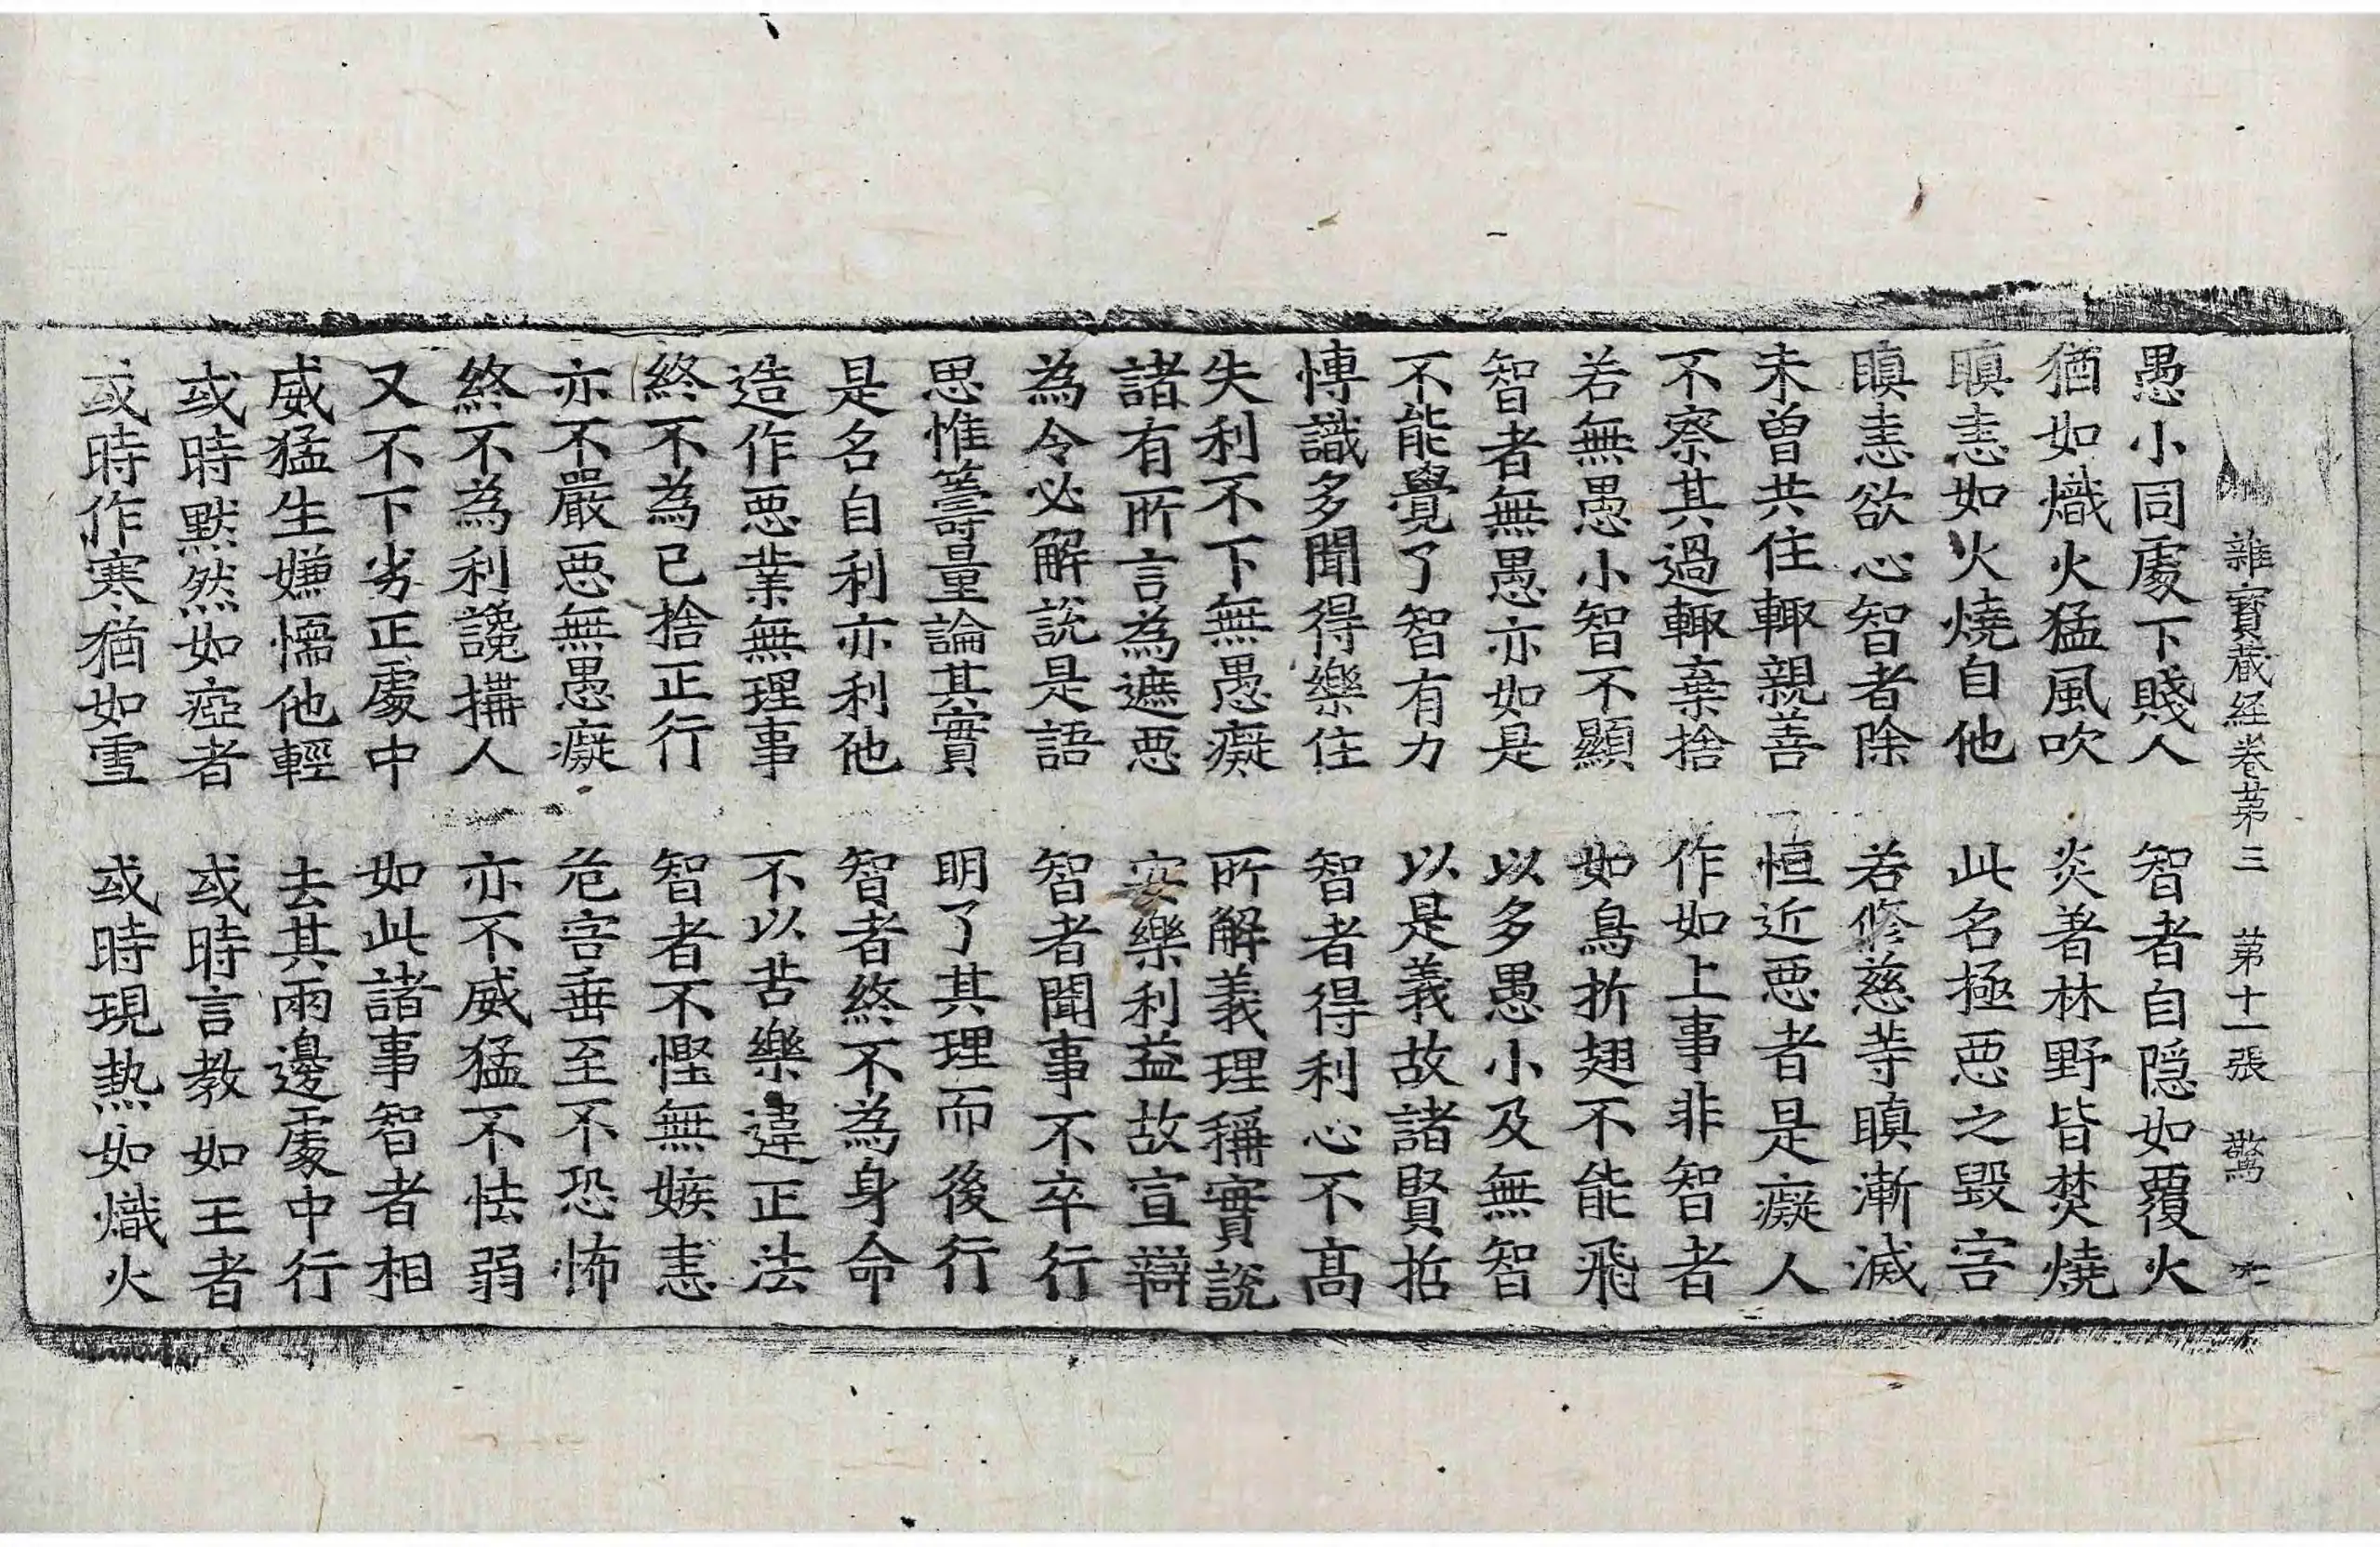 雜寶蔵経卷苐三 苐十一張 驚
愚小同處下賤人 智者自隱如覆火
猶如熾火猛風吹 炎著林野皆焚燒
瞋恚如火燒自他 此名極惡之毀害
瞋恚欲心智者除 若修慈等瞋漸滅
未曾共住輙親善 恒近惡者是癡人
不察其過輙棄捨 作如上事非智者
若無愚小智不顯 如鳥折翅不能飛
智者無愚亦如是 以多愚小及無智
不能覺了智有力 以是義故諸賢哲
博識多聞得樂住 智者得利心不髙
失利不下無愚癡 所解義理稱實說
諸有所言為遮惡 安樂利益故宣辯
為令必解說是語 智者聞事不卒行
思惟籌量論其實 明了其理而後行
是名自利亦利他 智者終不為身命
造作惡業無理事 不以苦樂違正法
終不為已捨正行 智者不慳無嫉恚
亦不嚴惡無愚癡 危害垂至不恐怖
終不為利讒搆人 亦不威猛不怯弱
又不下劣正處中 如此諸事智者相
威猛生嫌懦他輕 去其兩邊處中行
或時黙然如瘂者 或時言教如王者
或時作寒猶如雪 或時現熱如熾火